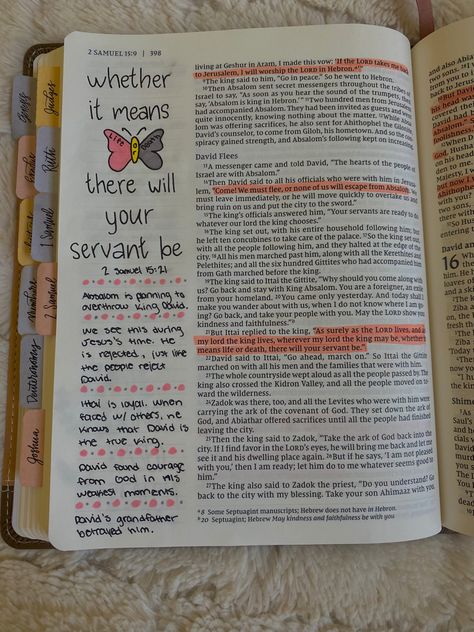 2 SAMUEL 15:9 | 398
whether
it means
Life
Death
there will
your
servant be
2 Samuel 15:21
Absalom is planning to
overthrow King David.
We see this during
Jesus's time. He
is rejected, just like
the people reject
David.
Ittai is loyal. When
faced w/ others, he
knows that David is
the true king.
David found courage
from God in his
weakest moments.
David's grandfather
betrayed him.
living at Geshur in Aram, I made this vow: 'If the LORD takes me
to Jerusalem, I will worship the LORD in Hebron.'"
9The king said to him, "Go in peace." So he went to Hebron.
10Then Absalom sent secret messengers throughout the tribes of
Israel to say, "As soon as you hear the sound of the trumpets, then
say, 'Absalom is king in Hebron.'" 11Two hundred men from Jerusalem
had accompanied Absalom. They had been invited as guests and went
quite innocently, knowing nothing about the matter. 12While Absa-
lom was offering sacrifices, he also sent for Ahithophel the Gilonite,
David's counselor, to come from Giloh, his hometown. And so the con-
spiracy gained strength, and Absalom's following kept on increasing.
David Flees
13A messenger came and told David, "The hearts of the people of
Israel are with Absalom."
14Then David said to all his officials who were with him in Jerusa-
lem, "Come! We must flee, or none of us will escape from Absalom. We
must leave immediately, or he will move quickly to overtake us and
bring ruin on us and put the city to the sword."
15The king's officials answered him, "Your servants are ready to do
whatever our lord the king chooses."
16The king set out, with his entire household following him; but
he left ten concubines to take care of the palace. 17So the king set out,
with all the people following him, and they halted at the edge of the
city. 18All his men marched past him, along with all the Kerethites and
Pelethites; and all the six hundred Gittites who had accompanied him
from Gath marched before the king.
19The king said to Ittai the Gittite, "Why should you come along with
us? Go back and stay with King Absalom. You are a foreigner, an exile
from your homeland. 20You came only yesterday. And today shall I
make you wander about with us, when I do not know where I am go-
ing? Go back, and take your people with you. May the LORD show you
kindness and faithfulness."
21But Ittai replied to the king, "As surely as the LORD lives, and as
my lord the king lives, wherever my lord the king may be, whether it
means life or death, there will your servant be."
22David said to Ittai, "Go ahead, march on." So Ittai the Gittite
marched on with all his men and the families that were with him.
23The whole countryside wept aloud as all the people passed by. The
king also crossed the Kidron Valley, and all the people moved on to-
ward the wilderness.
24Zadok was there, too, and all the Levites who were with him were
carrying the ark of the covenant of God. They set down the ark of
God, and Abiathar offered sacrifices until all the people had finished
leaving the city.
25Then the king said to Zadok, "Take the ark of God back into the
city. If I find favor in the LORD's eyes, he will bring me back and let me
see it and his dwelling place again. 26But if he says, 'I am not pleased
with you,' then I am ready; let him do to me whatever seems good to
him."
27The king also said to Zadok the priest, "Do you understand? Go
back to the city with my blessing. Take your son Ahimaaz with you
8 Some Septuagint manuscripts; Hebrew does not have in Hebron.
20 Septuagint; Hebrew May kindness and faithfulness be with you
Judges
Ruth
1 Samuel
2 Samuel
Numbers
Deuteronomy
Joshua
and also
David
16